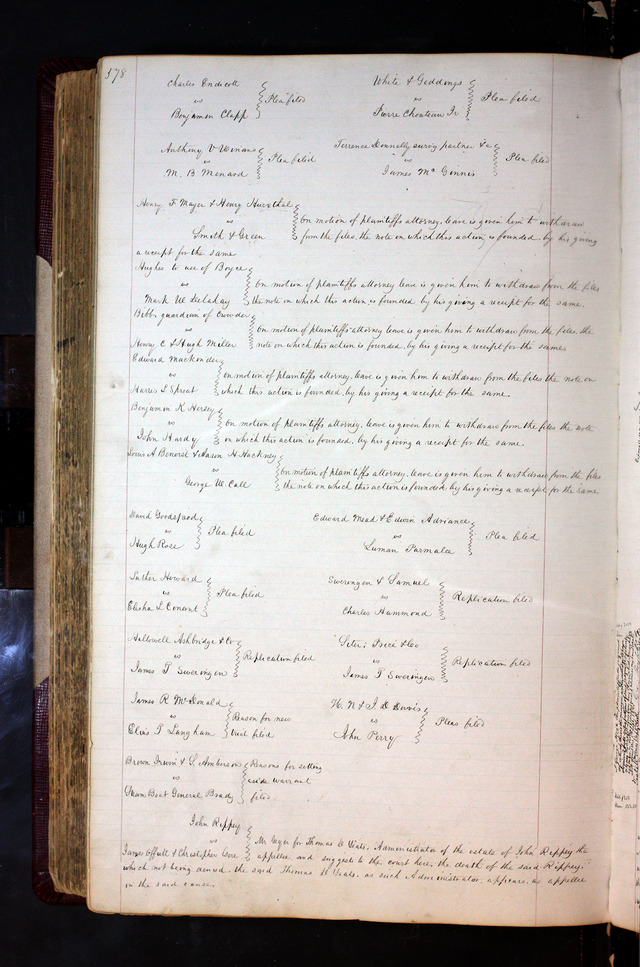 378
Charles Endicott
vs
Benjamin Clapp
Plea filed
White & Geddings
vs
Pierre Chouteau Jr
Plea filed
Anthony V Winans
vs
M. B Menard
Plea filed
Terrence Donnelly surviv partner &c
vs
James McGinnis
Plea filed
Henry F Mayer & Henry
vs
Smith & Green
On motion of plaintiffs attorney, leave is given him to withdraw
from the files, the note on which this action is founded, by his giving
a receipt for the same
Hughes to use of Boyce
vs
Mark W Delahay
On motion of plaintiffs attorney leave is given him to withdraw from the files
the note on which this action is founded by his giving a receipt for the same.
Bibb guardian of Crowder
vs
Henry C & Hugh Miller
On motion of plaintiffs attorney leave is given him to withdraw from the files, the
note on which this action is founded, by his giving a receipt for the same
Edward Mackinder
vs
Harris L Sproat
On motion of plaintiffs attorney, leave is given him to withdraw from the files the note on
which this action is founded, by his giving a receipt for the same.
Benjamin K Hersey
vs
John Hardy
On motion of plaintiffs attorney, leave is given him to withdraw from the files the note
on which this action is founded, by his giving a receipt for the same.
Louis A Benoist & Aaron H Hackney
vs
George W. Call
On motion of plaintiffs attorney, leave is given him to withdraw from the files
the note on which this action is founded by his giving a receipt for the same
David
vs
Hugh Rose
Plea filed
Edward Mead & Edwin Adriance
vs
Luman Parmalee
Plea filed
Luther Howard
vs
Elisha L Conant
Plea filed
Sweringen & Samuel
vs
Charles Hammond
Replication filed
Hallowell Ashbridge & Co
vs
James T Sweringen
Replication filed
Siter, Price & Co
vs
James T Sweringen
Replication filed
James R McDonald
vs
Elias T Langham
Reason for new
trial filed
H. N & J D Davis
vs
John Perry
Pleas filed
Brown Irwin & S. Amberson
vs
Steam Boat General Brady
Reasons for setting
aside warrant
filed
John Rippey
vs
James Offutt & Christopher
Mr Geyer for Thomas D Yeats, Administrator of the estate of John Rippey the
appellee and suggests to the court here, the death of the said Rippey,
which not being denied, the said Thomas D Yeats, as such Administrator, appears, as appellee
in the said cause.